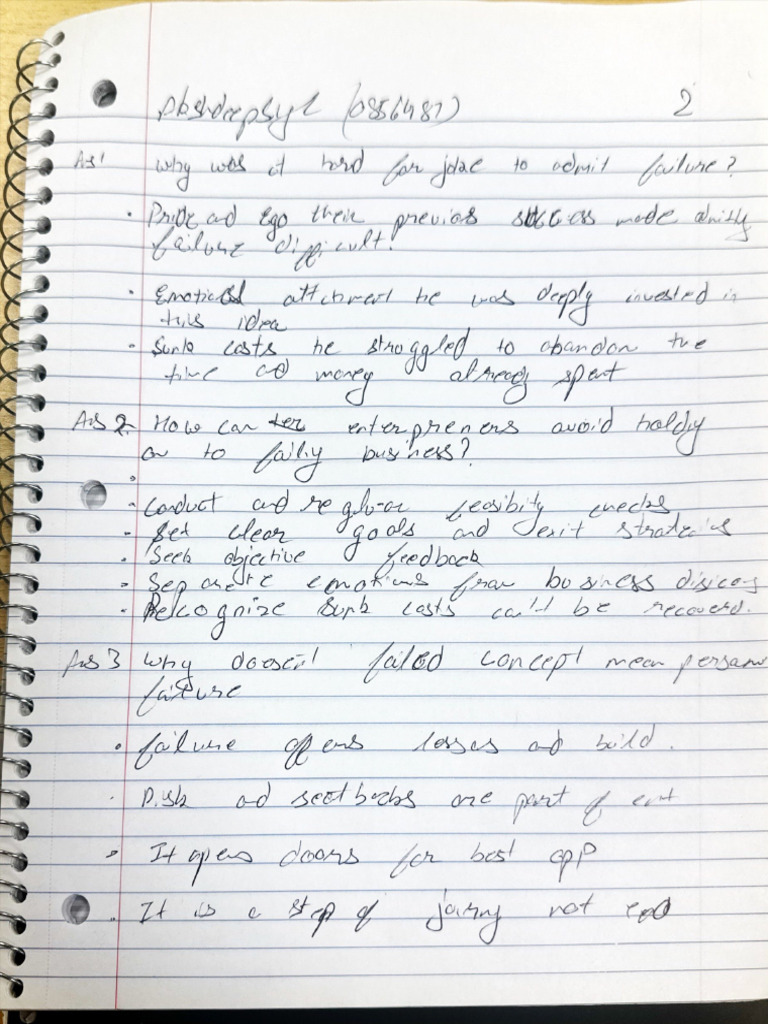 (0856487) 2
Ans 1 Why was it hard for jake to admit failure?
• Pride and Ego their previous success made
failure difficult!
• Emotional attchment he was deeply invested in
this idea
• Sunk costs he struggled to abandon the
time and money already spent
Ans 2 How can enterpreners avoid holdig
on to failig business?
• Conduct and regular feasibity checks
• Set clear goals and exit strategies
• Seek objective feedback
• Seperate emotions from business
• Recognize sunk costs can't be recoverd.
Ans 3 Why doesent failed concept mean personal
failure
• failure offers losses and build.
• Risk and seetbacks are part of
• It opens doors for best opp
• It is a step of journy not end